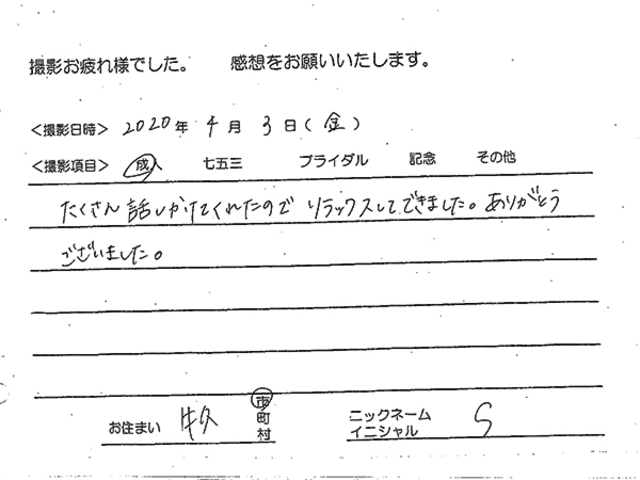 撮影お疲れ様でした。 感想をお願いいたします。
＜撮影日時＞ 2020年 4月 3日(金)
＜撮影項目＞ 成人 七五三 ブライダル 記念 その他
たくさん話しかけてくれたので リラックスしてできました。ありがとう
ございました。
お住まい 牛久 市町村 ニックネーム イニシャル S